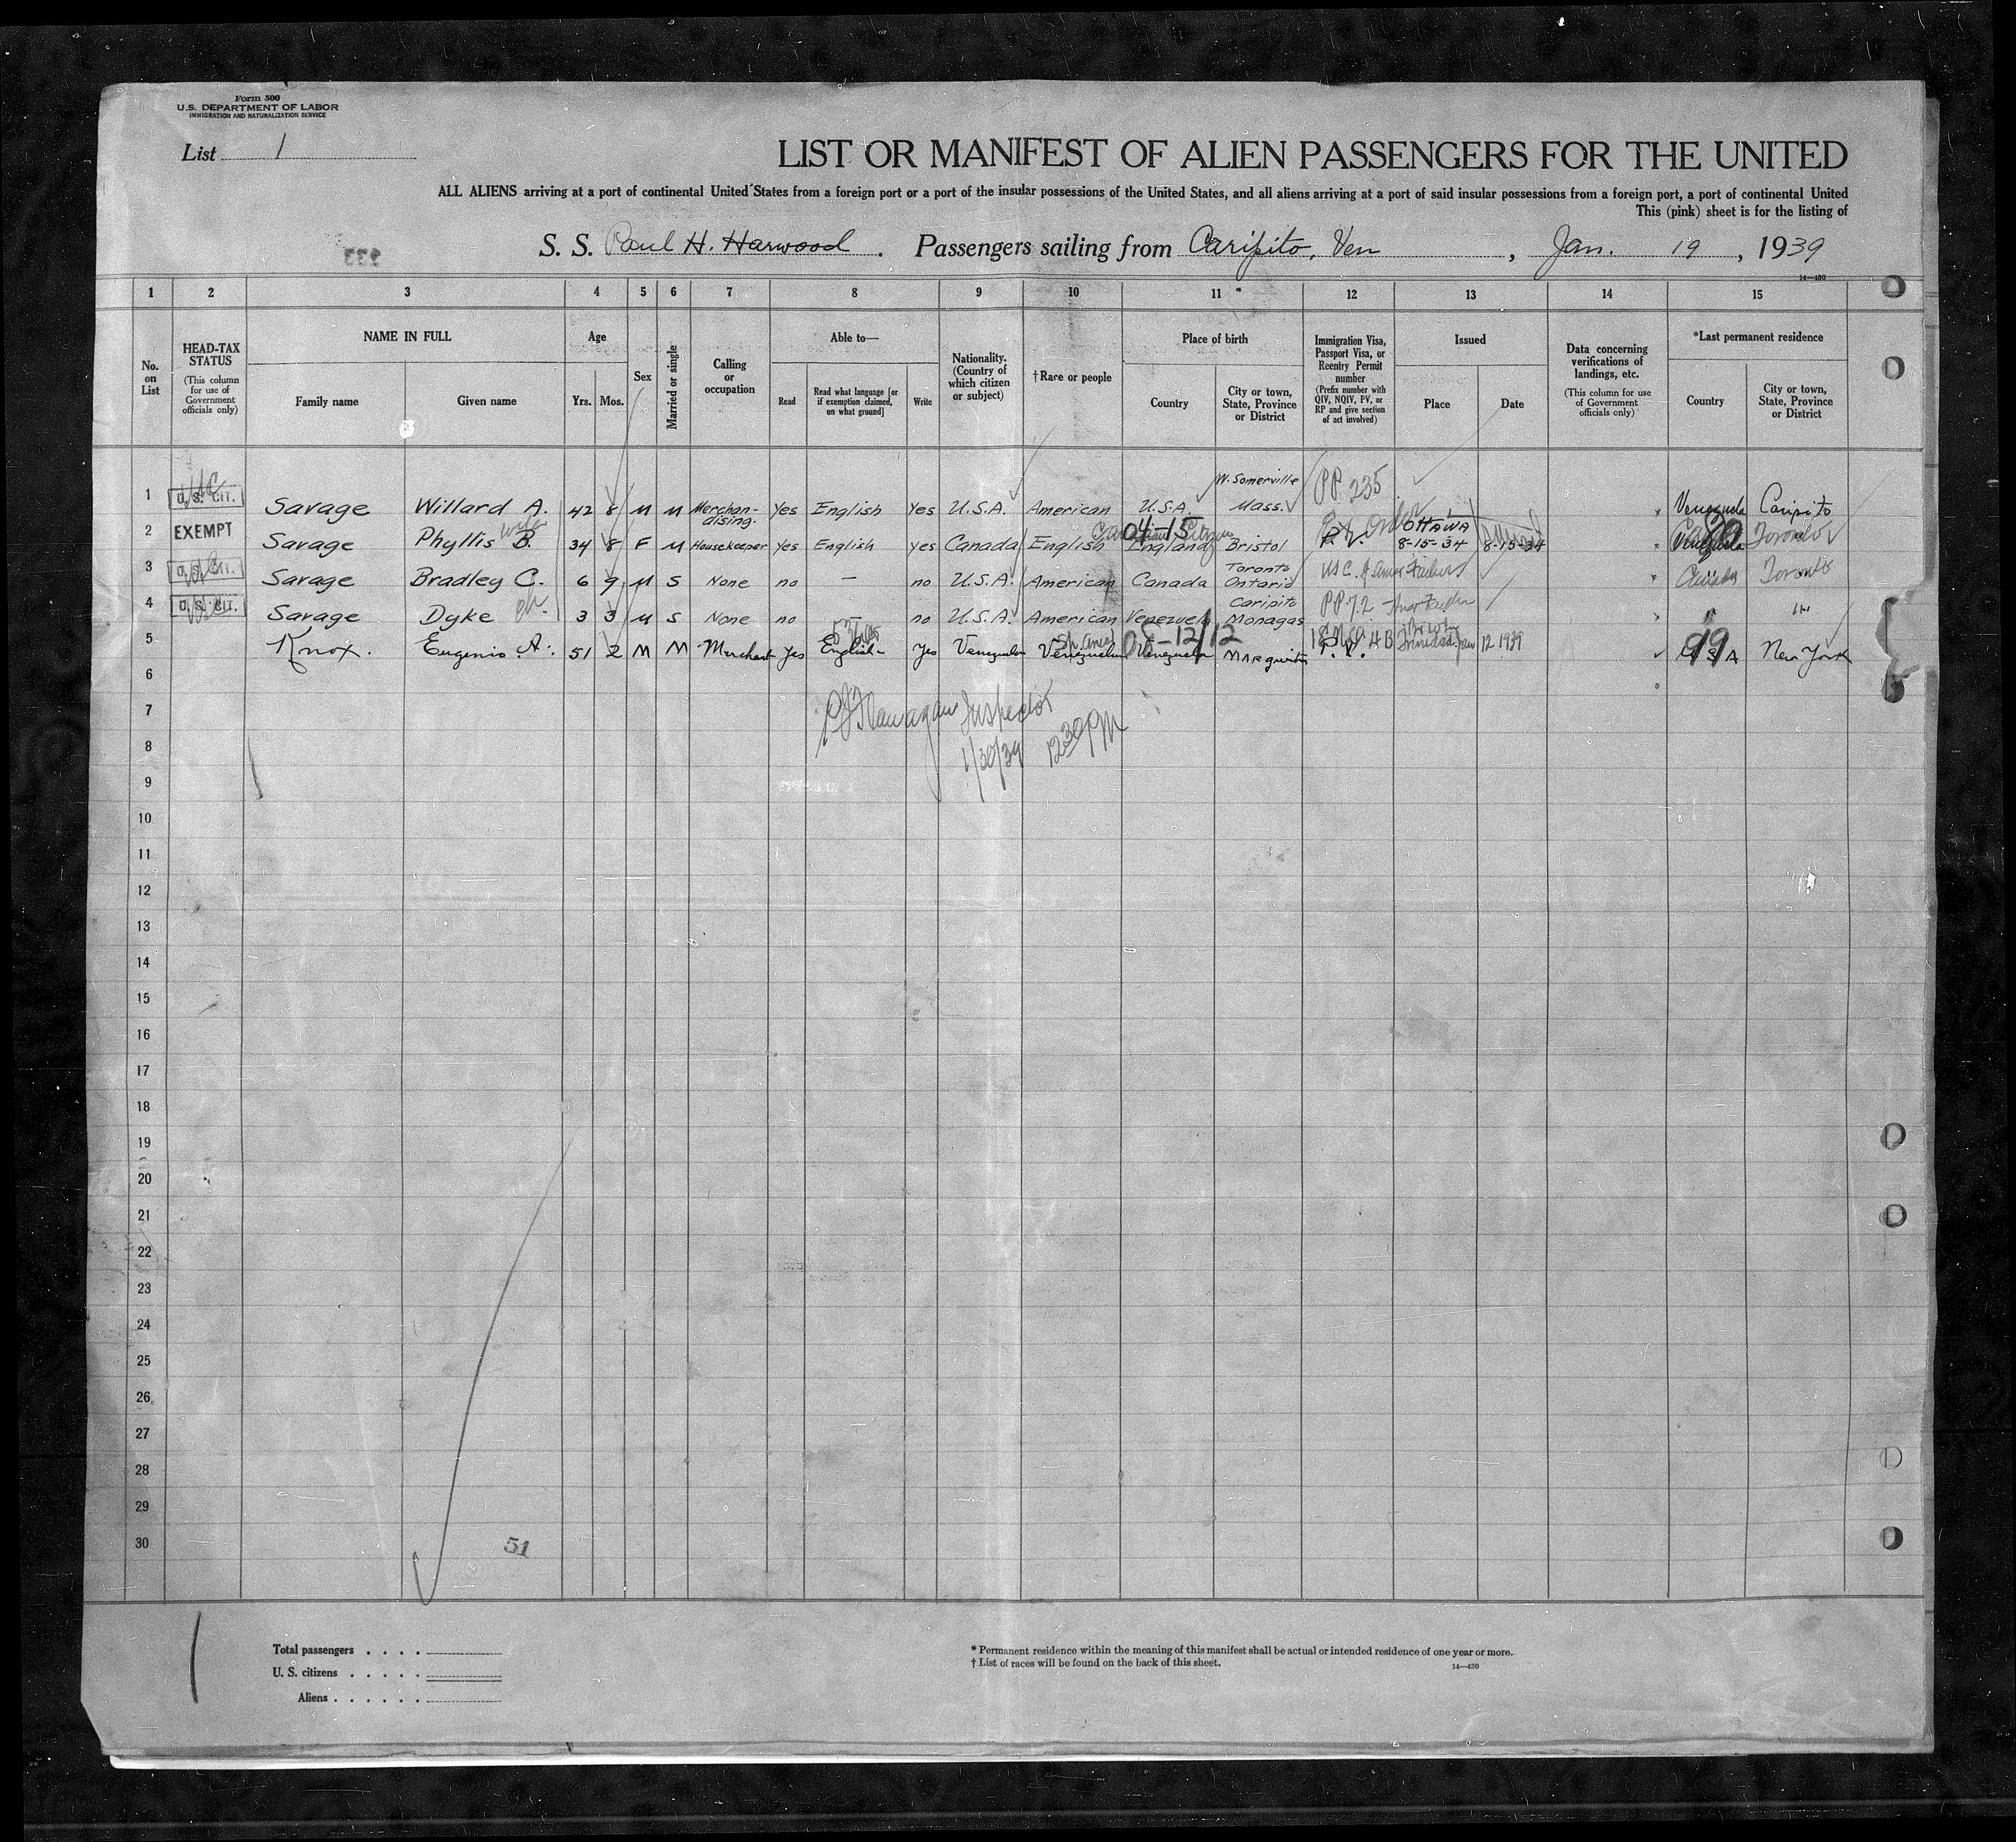 Form 500
U.S. DEPARTMENT OF LABOR
IMMIGRATION AND NATURALIZATION SERVICE
List 1
LIST OR MANIFEST OF ALIEN PASSENGERS FOR THE UNITED
ALL ALIENS arriving at a port of continental United States from a foreign port or a port of the insular possessions of the United States, and all aliens arriving at a port of said insular possessions from a foreign port, a port of continental United
This (pink) sheet is for the listing of
S. S. Paul H. Harwood. Passengers sailing from Caripito, Ven, Jan. 19, 1939
14—430
1 2 3 4 5 6 7 8 9 10 11 12 13 14 15
No. on List
HEAD-TAX STATUS (This column for use of Government officials only)
NAME IN FULL
Family name
Given name
Age
Yrs. Mos.
Sex
Married or single
Calling or occupation
Able to—
Read
Read what language [or if exemption claimed, on what ground]
Write
Nationality. (Country of which citizen or subject)
†Race or people
Place of birth
Country
City or town, State, Province or District
Immigration Visa, Passport Visa, or Reentry Permit number (Prefix number with QIV, NQIV, PV, or RP and give section of act involved)
Issued
Place
Date
Data concerning verifications of landings, etc. (This column for use of Government officials only)
*Last permanent residence
Country
City or town, State, Province or District
1 U.S. CIT. Savage Willard A. 42 8 M M Merchandising. Yes English Yes U.S.A. American U.S.A. W. Somerville Mass. PP 235 Venezuela Caripito
2 EXEMPT Savage Phyllis B. wife 34 8 F M Housekeeper Yes English yes Canada English England 04-15 Bristol OTTAWA 8-15-34 8-15-34 Venezuela 30 Toronto
3 U.S. CIT. Savage Bradley C. 6 9 M S None no — no U.S.A. American Canada Toronto Ontario USC Canada Toronto
4 U.S. CIT. Savage Dyke ch. 3 3 M S None no — no U.S.A. American Venezuela Caripito Monagas PP. 72 "
5 Knox. Eugenio A. 51 2 M M Merchant Yes English Yes Venezuela Venezuelan Sp. Amer Venezuela 08-12/12 MARguarita P.V. Trinidad Jan 12 1939 USA 99 New York
6
7
8
9
10
11
12
13
14
15
16
17
18
19
20
21
22
23
24
25
26
27
28
29
30
Flanagan Inspector
1/30/39 12 30 PM
51
Total passengers . . . .
U. S. citizens . . . . .
Aliens . . . . . .
* Permanent residence within the meaning of this manifest shall be actual or intended residence of one year or more.
† List of races will be found on the back of this sheet.
14—430